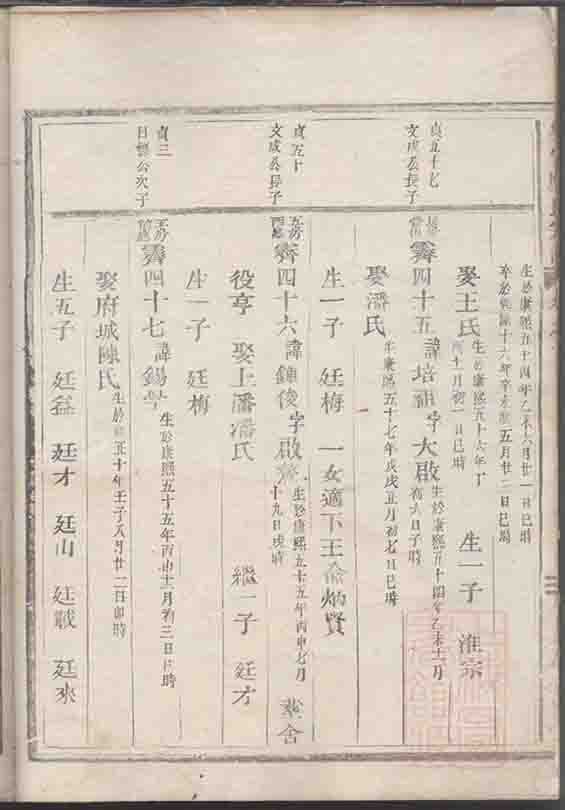 生於康熙五十四年乙未六月廿一日巳時
卒於乾隆十六年辛亥五月廿二日巳時
娶王氏 生於康熙五十六年丁酉十月初一日巳時 生一子 淮宗
貞五十七
文成公長子
霽四十五 諱培 字大啟 生於康熙五十四年乙未十二月初六日子時
娶潘氏 生康熙五十七年戊戌正月初七日巳時
生一子 廷梅 一女適下王俞炳賢
貞五十
文成公長子
霽四十六 諱鍾俊 字啟 生於康熙五十五年丙申七月十九日戌時 業舍
役亭 娶上潘潘氏 繼一子 廷才
生一子 廷梅
貞三
日 公次子
霽四十七 諱錫 生於康熙五十五年丙申十二月初三日 時
娶府城陳氏 生於 五十年壬子八月廿二日卯時
生五子 廷益 廷才 廷山 廷戰 廷來